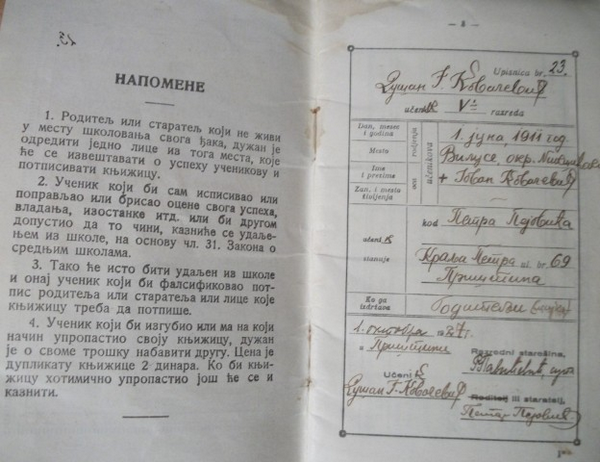 НАПОМЕНЕ
1. Родитељ или старатељ који не живи
у месту школовања свога ђака, дужан је
одредити једно лице из тога места, које
ће се извештавати о успеху учениковом и
потписивати књижицу.
2. Ученик који би сам исписивао или
поправљао или брисао оцене свога успеха,
владања, изостанке итд. или би другом
допустио да то чини, казниће се удаље-
њем из школе, на основу чл. 31. Закона о
средњим школама.
3. Тако ће исто бити удаљен из школе
и онај ученик који би фалсификовао пот-
пис родитеља или старатеља или лице које
књижицу треба да потпише.
4. Ученик који би изгубио или ма на који
начин упропастио своју књижицу, дужан
је о своме трошку набавити другу. Цена је
дупликату књижице 2 динара. Ко би књи-
жицу хотимично упропастио још ће се и
казнити.
Upisnica br. 23.
Душан Г. Ковачевић
učeni V razreda
Dan, mesec
i godina
rođenja
1. јуна, 1911 год
Mesto
Вилусе, окр.
učenikova
Ime
i prezime
oca
+ Јован Ковачевић
Zan. i mesto
življenja
kod Петра Пејовића
učeni
stanuje
Краља Петра ul. br. 69
Приштина
Ko ga
izdržava
Родитељи
1. октобра 1927.
u Приштини
Razredni starešina,
Učeni
Душан Г. Ковачевић
Roditelj ili staratelj,
Петар Пејовић